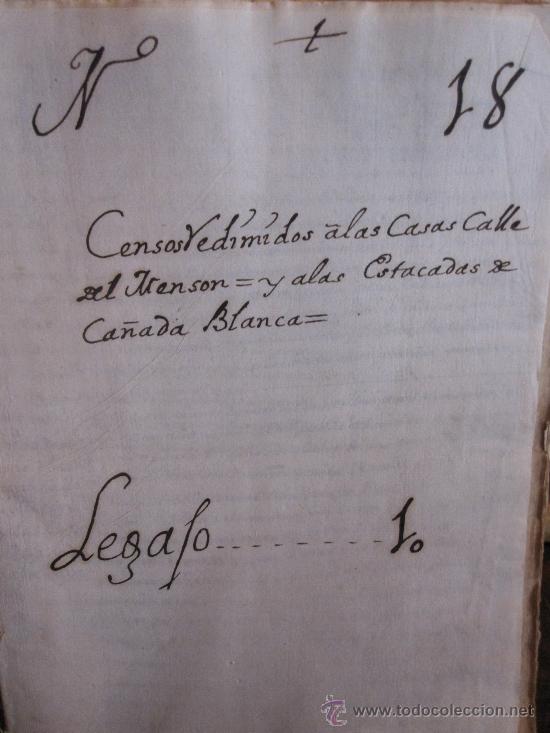 †
Nº 18
Censos redimidos â las Casas Calle
del Menson = y alas Estacadas de
Cañada Blanca =
Legajo - - - - - - - - 1º
todocoleccion
www.todocoleccion.net